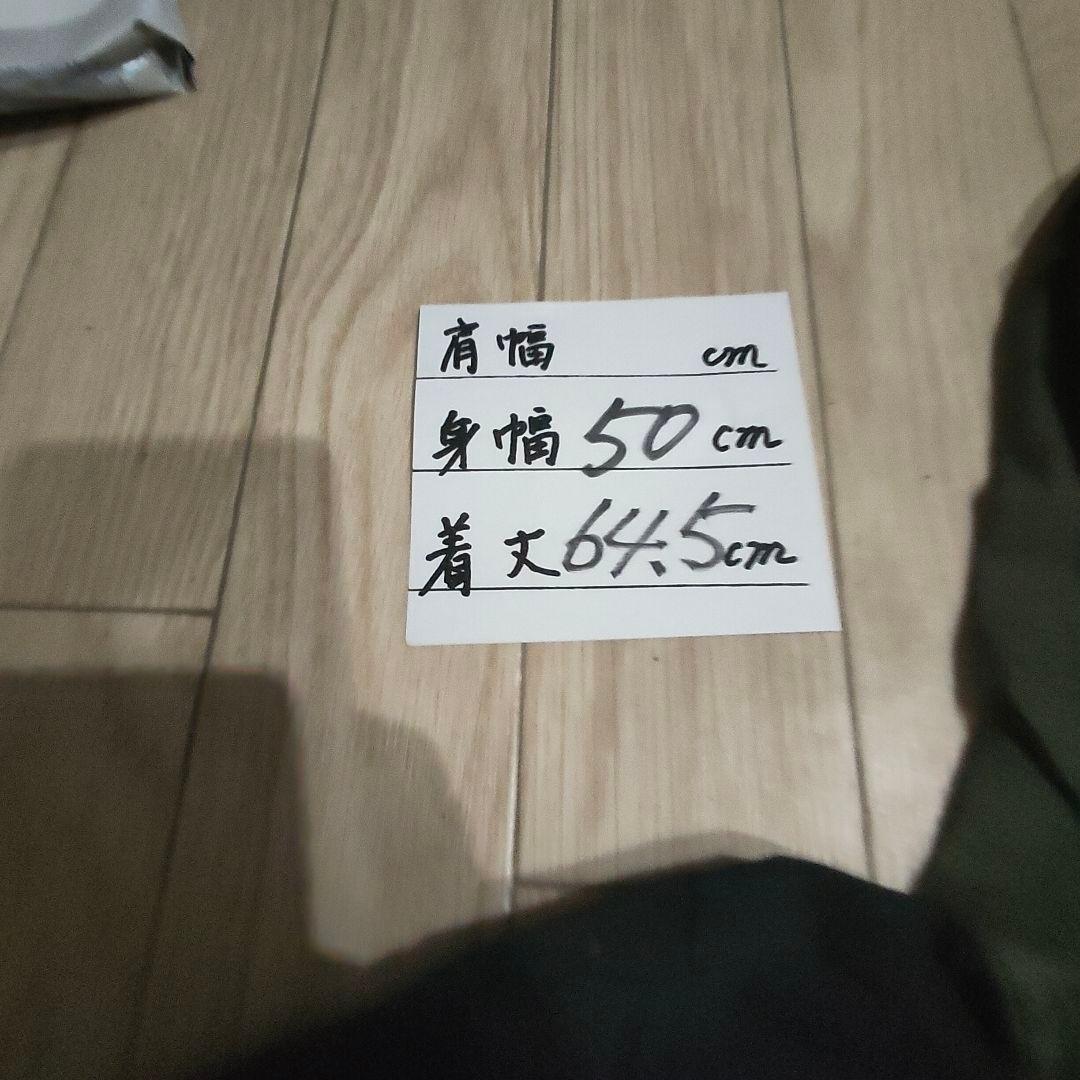 肩幅 cm
身幅 50 cm
着丈 64.5 cm